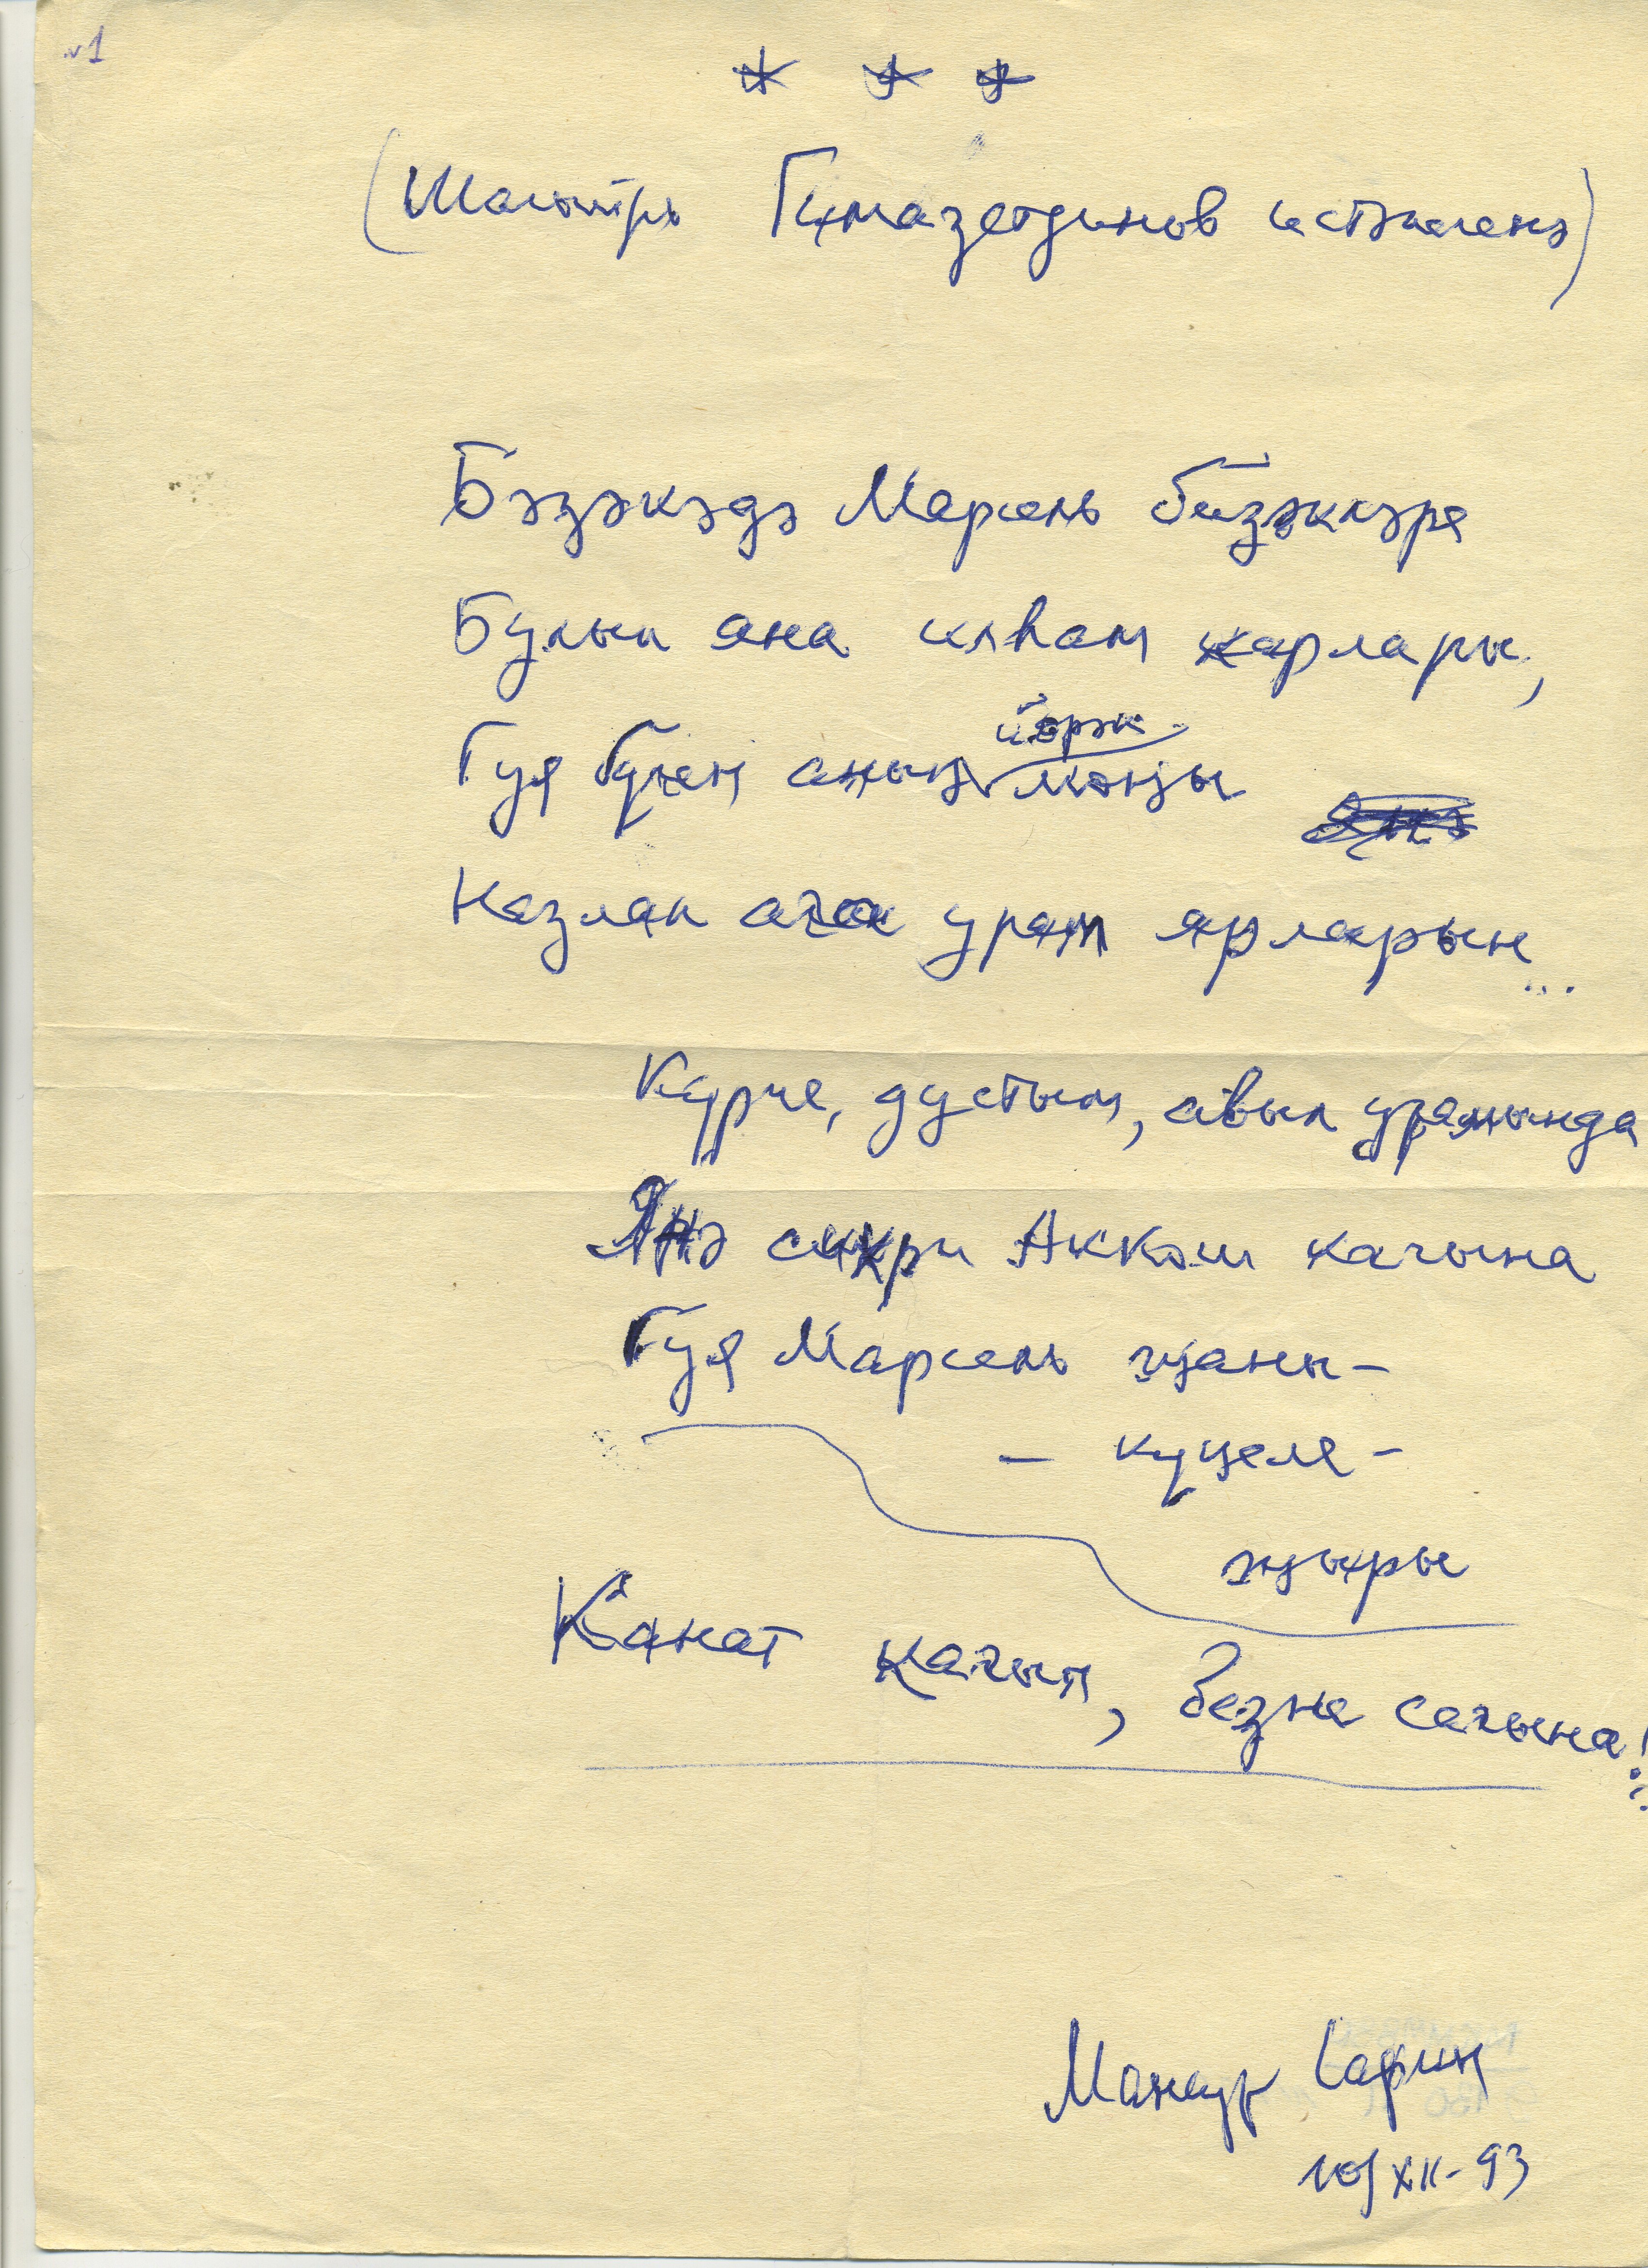 №1
* * *
(Шагыйрь Гимазетдинов истәлегенә)
Бәзәкәдә Марсель бизәкләре
Булып яна илһам карлары,
Гүя бүген аның йөрәк моңы
Назлап ага урам ярларын...
Күрче, дустым, авыл урамында
Яңә сикри Аккош кагына
Гүя Марсель җаны –
– күңеле –
җыры
Канат кагып, безне сагына!..
Мансур Сафин
10/XII-93